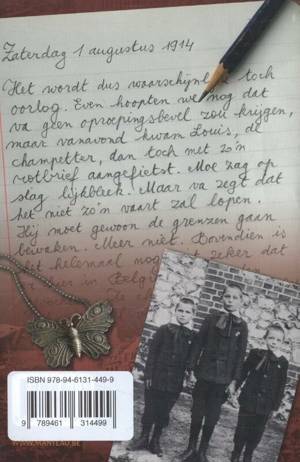 Zaterdag 1 augustus 1914
Het wordt dus waarschijnlijk toch
oorlog. Even hoopten we nog dat
va geen oproepingsbevel zou krijgen,
maar vanavond kwam Louis, de
champetter, dan toch met zo'n
rotbrief aangefietst. Moe zag op
slag lijkbleek. Maar va zegt dat
het niet zo'n vaart zal lopen.
Hij moet gewoon de grenzen gaan
bewaken. Meer niet. Bovendien is
het helemaal nog zeker dat
hier in België
ISBN 978-94-6131-449-9
9 789461 314499
WWW.MANTEAU.BE